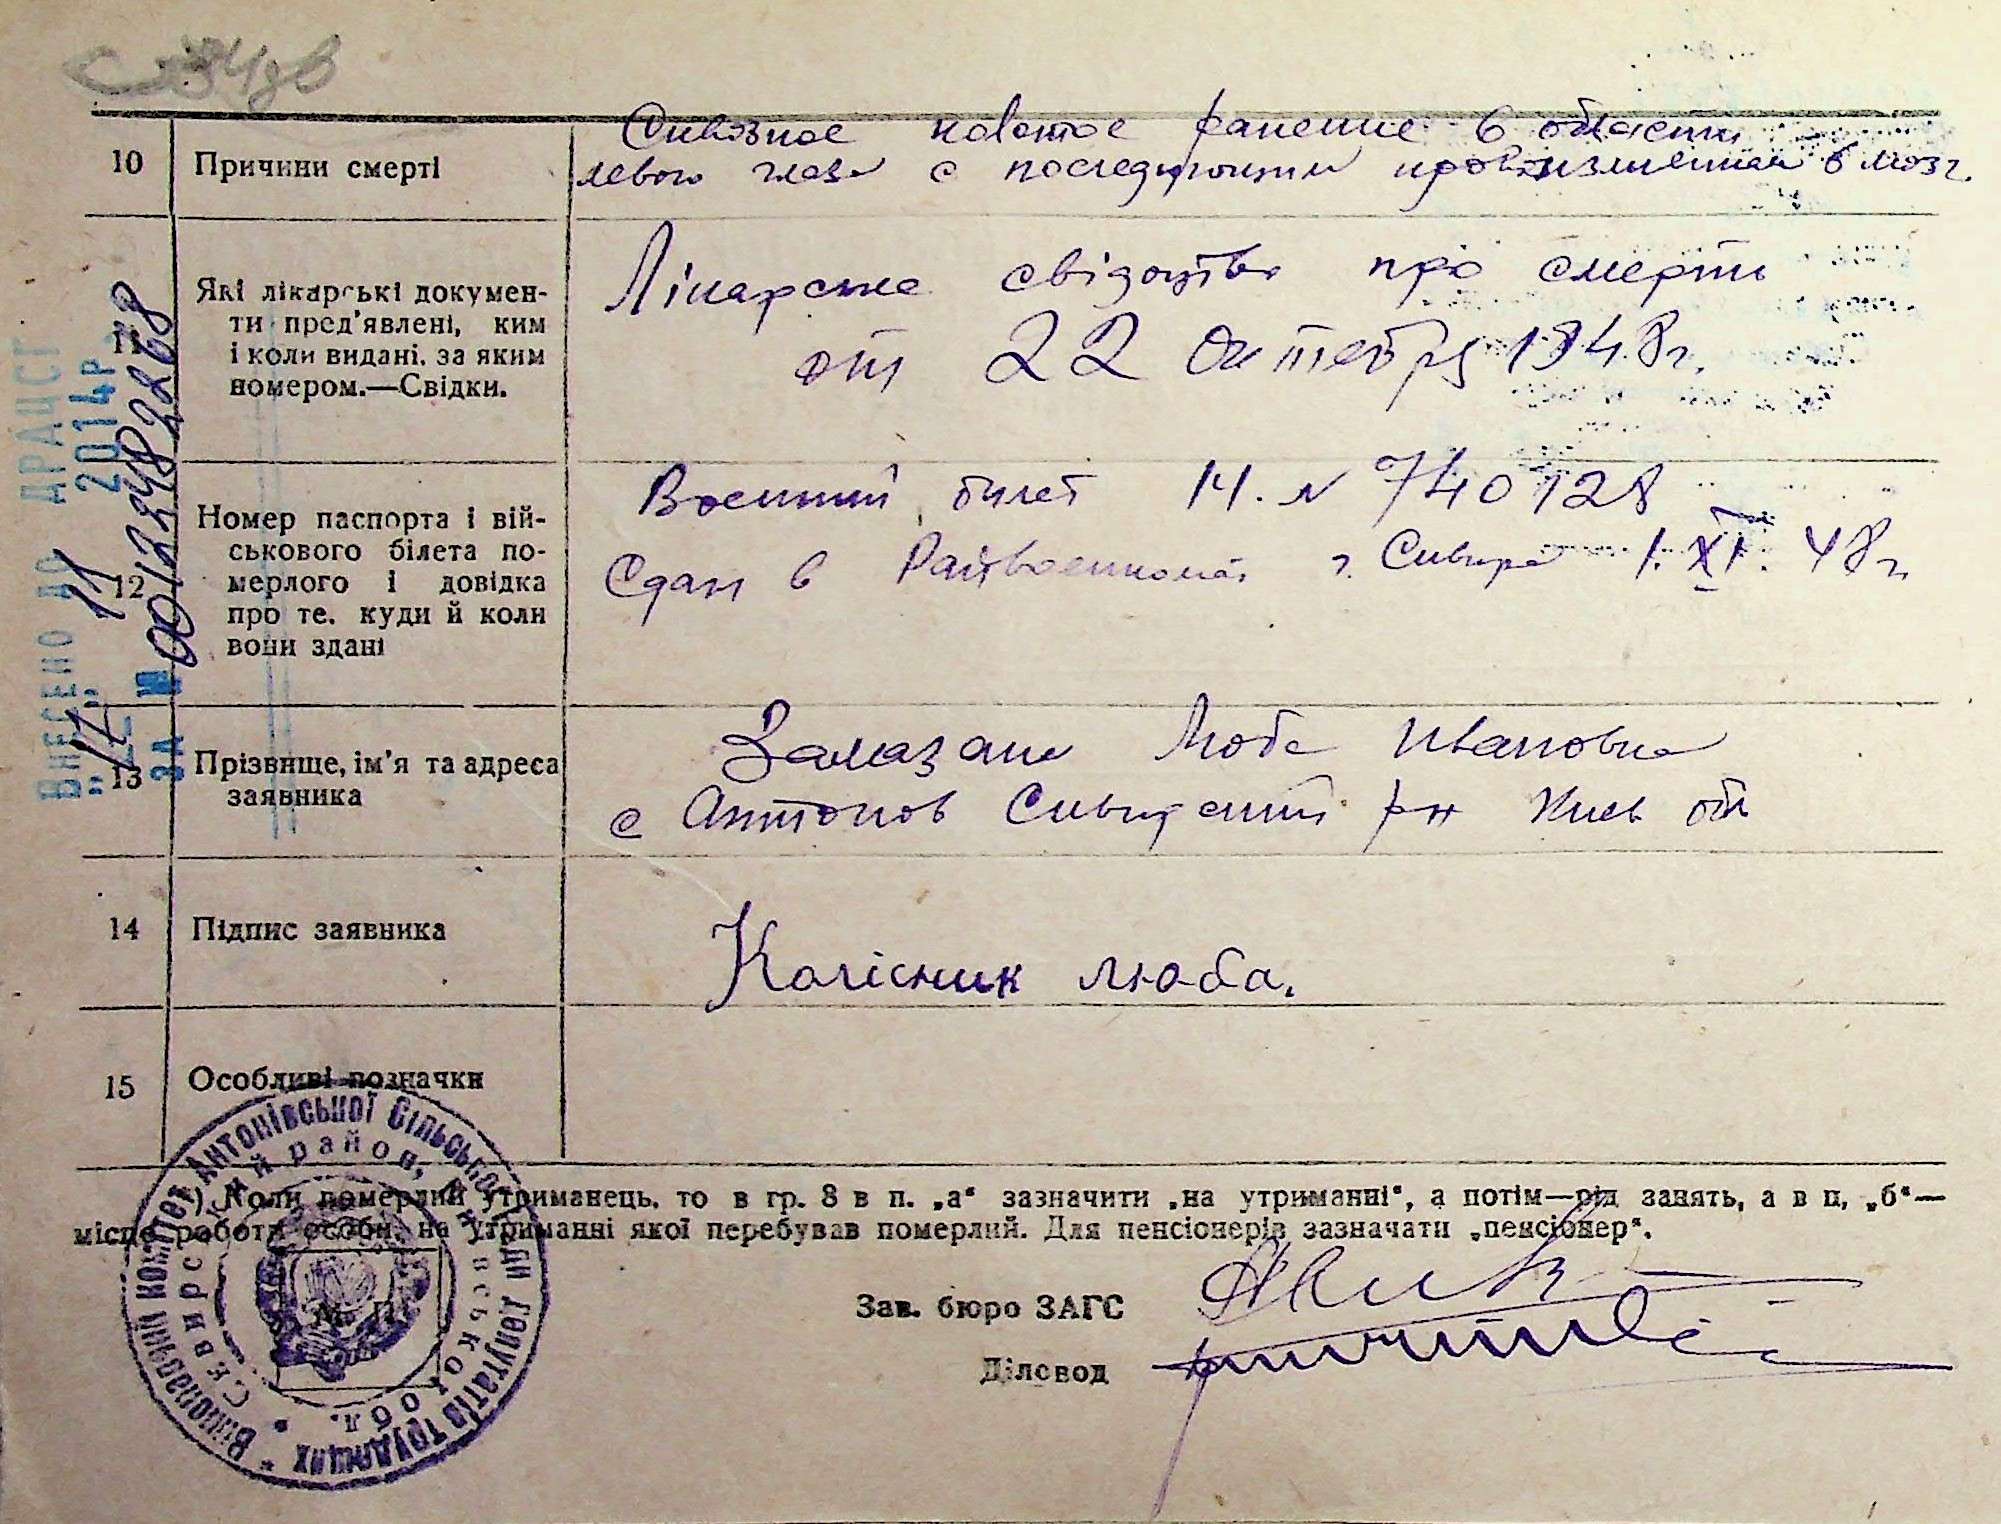 10 Причини смерті
Сквозное колотое ранение в области
левого глаза с последующим кровоизлиянием в мозг.
11 Які лікарські докумен-
ти пред'явлені, ким
і коли видані, за яким
номером.—Свідки.
Лікарське свідоцтво про смерть
от 22 октября 1948 г.
12 Номер паспорта і вій-
ськового білета по-
мерлого і довідка
про те, куди й коли
вони здані
Военный билет № 740128
Сдан в Райвоенкомат г. Сквира 1.XI.48 г.
13 Прізвище, ім'я та адреса
заявника
Люба Ивановна
с Антонов Сквирский р-н Киев обл
14 Підпис заявника
Колісник люба.
15 Особливі позначки
*) Коли померлий утриманець, то в гр. 8 в п. „а“ зазначити „на утриманні“, а потім—рід занять, а в п. „б“—
місце роботи особи, на утриманні якої перебував померлий. Для пенсіонерів зазначати „пенсіонер“.
Зав. бюро ЗАГС
Діловод
М. П.
Виконавчий комітет Антонівської сільської Ради депутатів трудящих
район, Київської обл.
ВНЕСЕНО ДО ДРАЦСГ
11 2014р.
ЗА № 00122482268